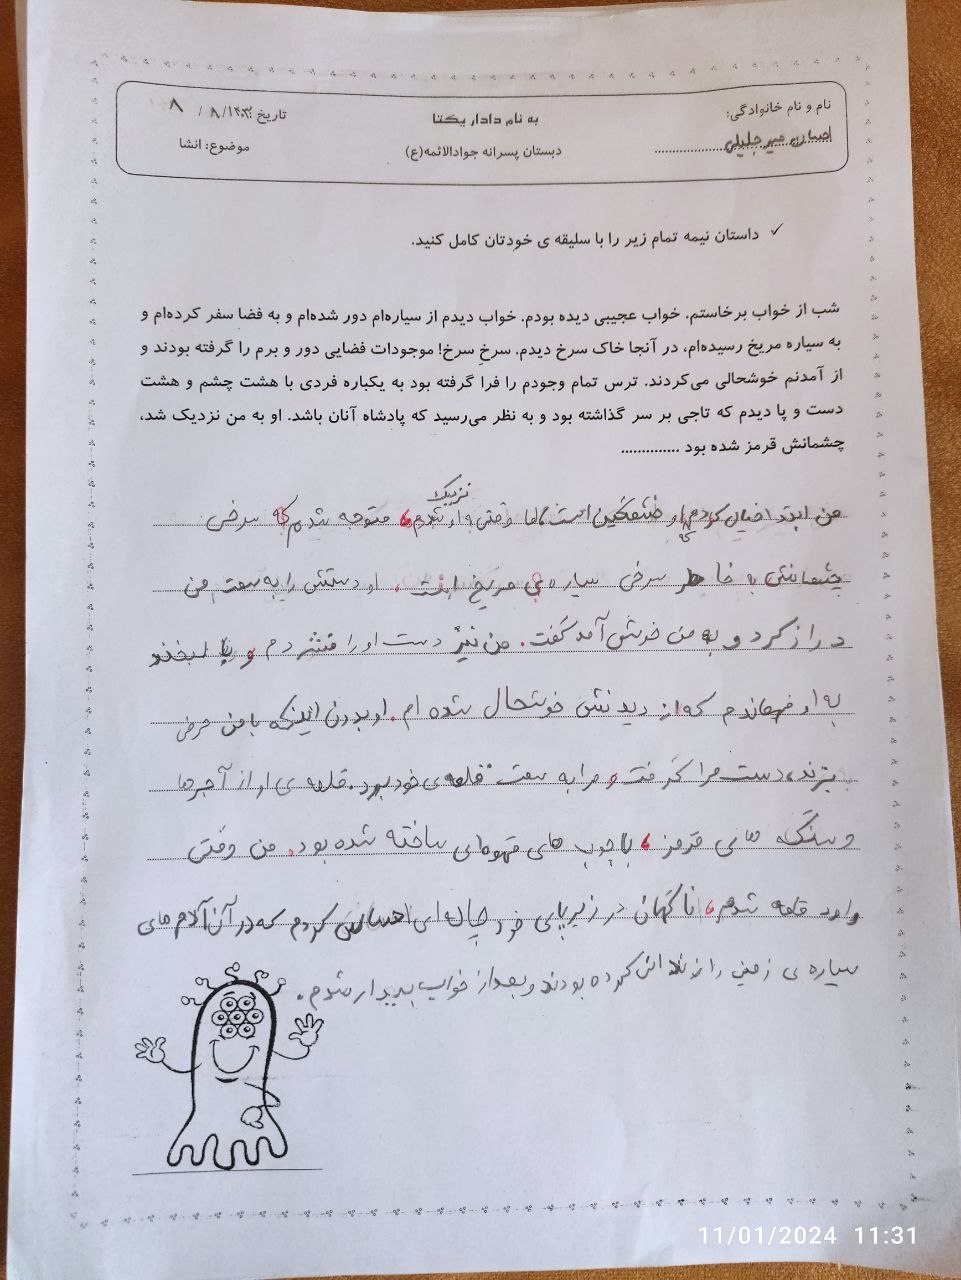 به نام دادار یکتا
نام و نام خانوادگی:
میرجلیلی
دبستان پسرانه جوادالائمه(ع)
تاریخ ۱۴۰۳/ ۸ / ۸
موضوع: انشا
✓ داستان نیمه تمام زیر را با سلیقه ی خودتان کامل کنید.
شب از خواب برخاستم. خواب عجیبی دیده بودم. خواب دیدم از سیاره‌ام دور شده‌ام و به فضا سفر کرده‌ام و
به سیاره مریخ رسیده‌ام، در آنجا خاک سرخ دیدم. سرخِ سرخ! موجودات فضایی دور و برم را گرفته بودند و
از آمدنم خوشحالی می‌کردند. ترس تمام وجودم را فرا گرفته بود به یکباره فردی با هشت چشم و هشت
دست و پا دیدم که تاجی بر سر گذاشته بود و به نظر می‌رسید که پادشاه آنان باشد. او به من نزدیک شد،
چشمانش قرمز شده بود ..............
من ابتدا خیال کردم که او خشمگین است، اما وقتی به او نزدیک شدم، متوجه شدم که سرخی
چشمانش به خاطر سرخی سیاره ی مریخ است. او دستش را به سمت من
دراز کرد و به من خوش آمد گفت. من نیز دست او را فشردم و با لبخند
به او فهماندم که از دیدنش خوشحال شده ام. او بدون اینکه با من حرفی
بزند، دست مرا گرفت و مرا به سمت قلعه ی خود برد. قلعه ی او از آجرها
و سنگ های قرمز، با چوب های قهوه‌ای ساخته شده بود. من وقتی
وارد قلعه شدم، ناگهان در زیر پای خود چاله ای احساس کردم که در آن آدم های
سیاره ی زمین را زندانی کرده بودند و بعد از خواب بیدار شدم.
11/01/2024 11:31